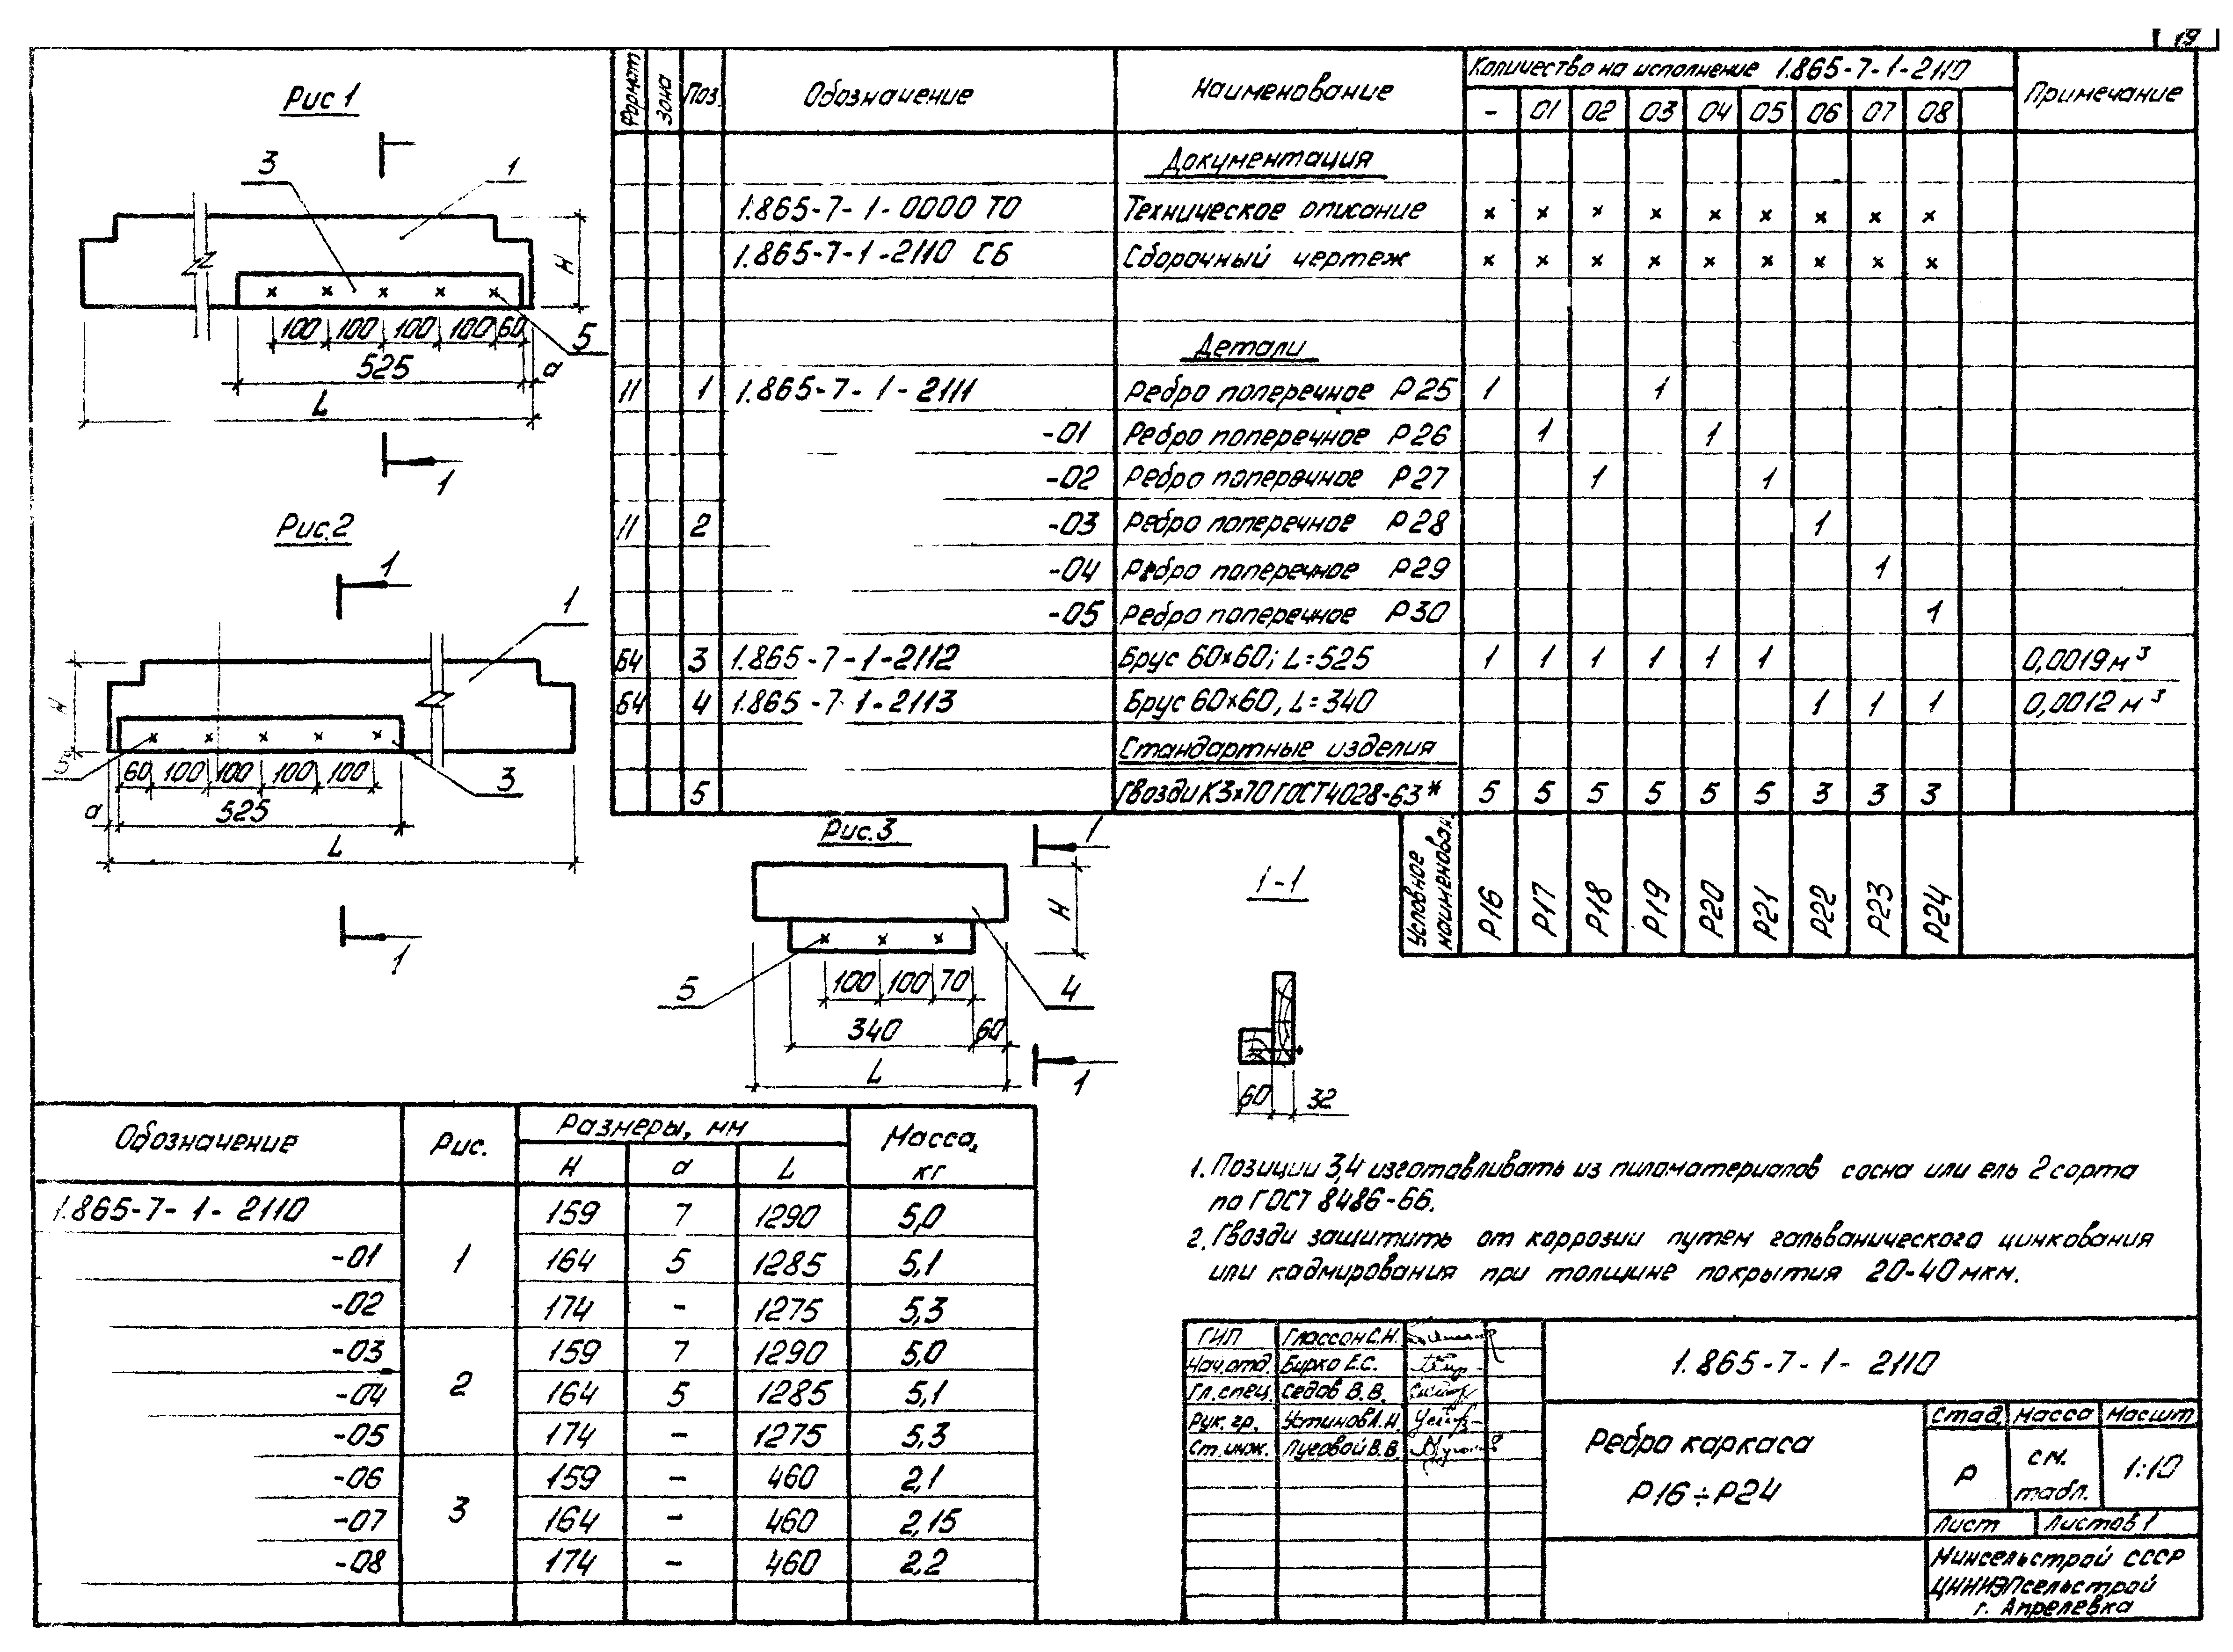 19
Рис 1
3
1
H
100 100 100 100 60
5
525
a
L
1
Рис.2
1
1
H
5
60 100 100 100 100
3
a
525
L
1
Формат Зона Поз. Обозначение Наименование Количество на исполнение 1.865-7-1-2110 Примечание
- 01 02 03 04 05 06 07 08
Документация
1.865-7-1-0000 ТО Техническое описание x x x x x x x x x
1.865-7-1-2110 СБ Сборочный чертеж x x x x x x x x x
Детали
11 1 1.865-7-1-2111 Ребро поперечное Р25 1 1
-01 Ребро поперечное Р26 1 1
-02 Ребро поперечное Р27 1 1
11 2 -03 Ребро поперечное Р28 1
-04 Ребро поперечное Р29 1
-05 Ребро поперечное Р30 1
Б4 3 1.865-7-1-2112 Брус 60×60; L=525 1 1 1 1 1 1 0,0019 м³
Б4 4 1.865-7-1-2113 Брус 60×60, L=340 1 1 1 0,0012 м³
Стандартные изделия
5 Гвозди К3×70 ГОСТ 4028-63* 5 5 5 5 5 5 3 3 3
Условное наименован. Р16 Р17 Р18 Р19 Р20 Р21 Р22 Р23 Р24
Рис.3
1
H
5
100 100 70
4
340 60
L
1
1-1
60 32
Обозначение Рис. Размеры, мм Масса, кг
H a L
1.865-7-1-2110 1 159 7 1290 5,0
-01 164 5 1285 5,1
-02 174 - 1275 5,3
-03 2 159 7 1290 5,0
-04 164 5 1285 5,1
-05 174 - 1275 5,3
-06 3 159 - 460 2,1
-07 164 - 460 2,15
-08 174 - 460 2,2
1. Позиции 3,4 изготавливать из пиломатериалов сосна или ель 2 сорта
по ГОСТ 8486-66.
2. Гвозди защитить от коррозии путем гальванического цинкования
или кадмирования при толщине покрытия 20-40 мкм.
ГИП Глассон С.Н.
Нач.отд. Бирко Е.С.
Гл.спец. Седов В.В.
Рук.гр. Устинов Л.Н.
Ст.инж. Луговой В.В.
1.865-7-1-2110
Ребро каркаса
Р16÷Р24
Стад. Масса Масшт
Р см. табл. 1:10
Лист Листов 1
Минсельстрой СССР
ЦНИИЭПсельстрой
г. Апрелевка